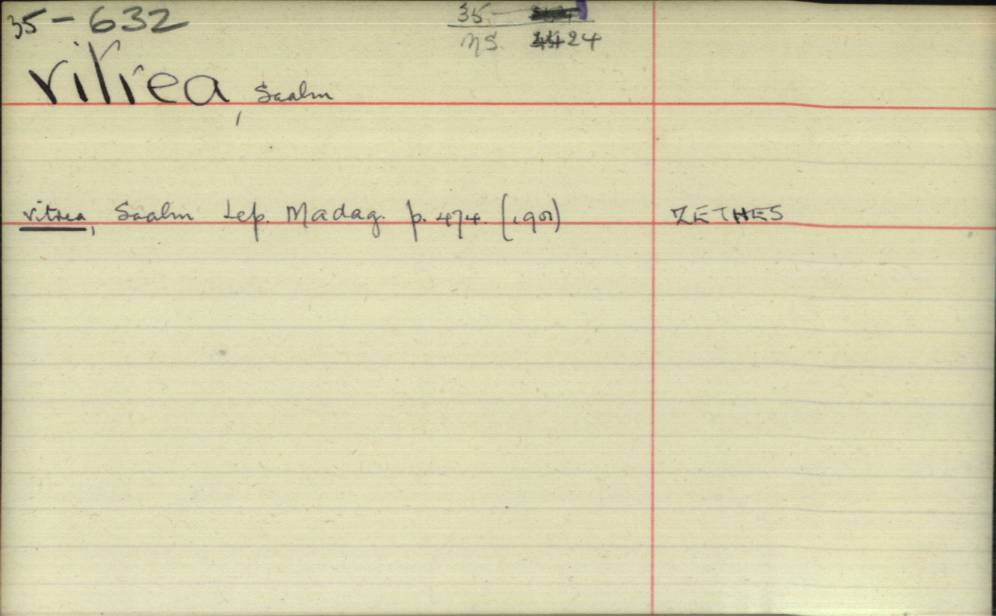 35-632
35
NS 24
vitrea, Saalm
vitrea, Saalm Lep. Madag. p. 474. ZETHES